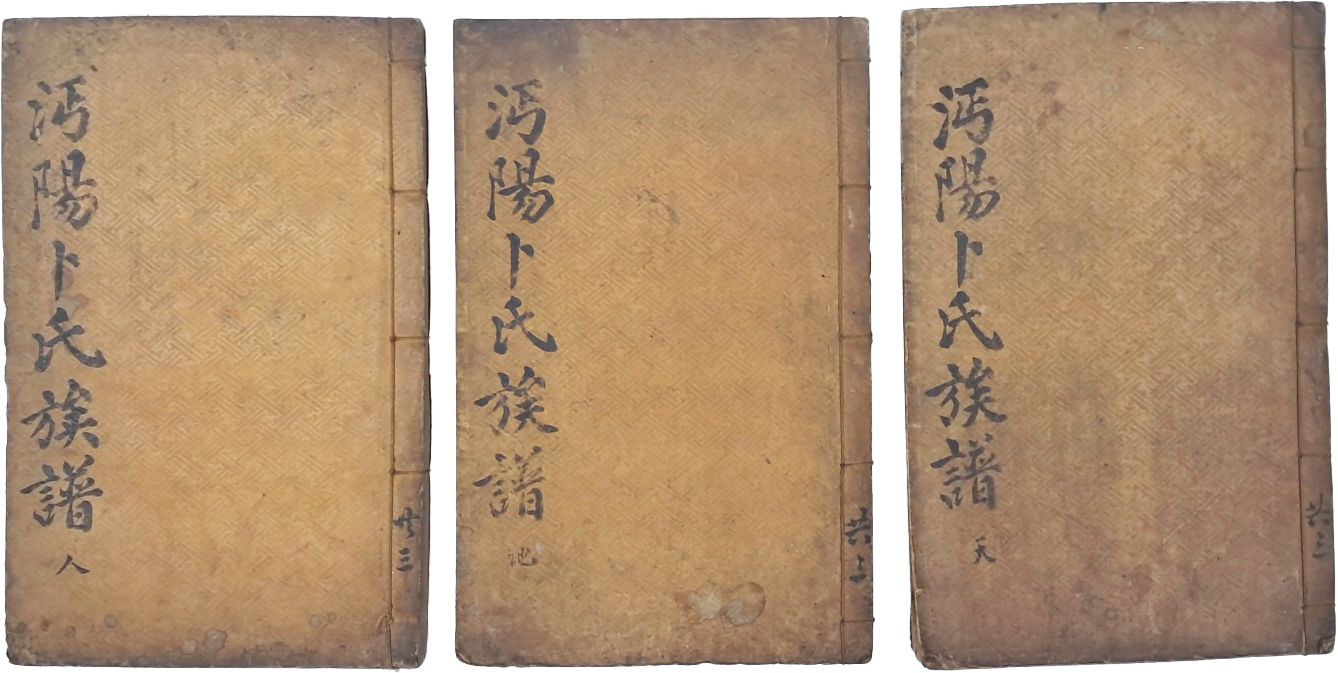 沔陽卜氏族譜 天
共三
沔陽卜氏族譜 地
共三
沔陽卜氏族譜 人
共三